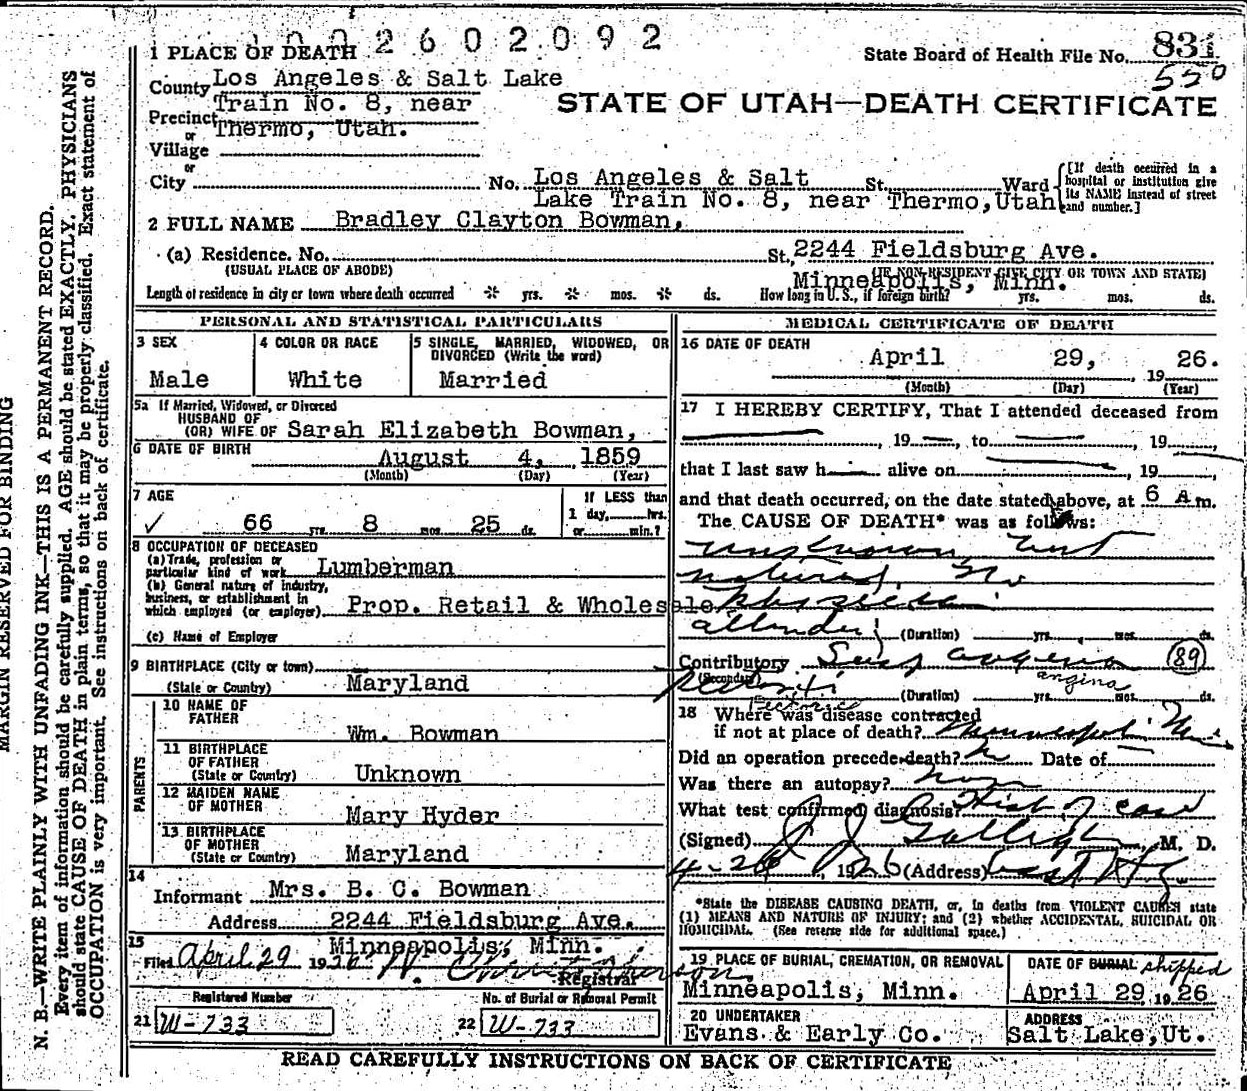 1002602092
1 PLACE OF DEATH
State Board of Health File No. 831
550
County Los Angeles & Salt Lake
Train No. 8, near
STATE OF UTAH—DEATH CERTIFICATE
Precinct
or Thermo, Utah.
Village
or
City
No. Los Angeles & Salt St. Ward
Lake Train No. 8, near Thermo, Utah
[If death occurred in a
hospital or institution give
its NAME instead of street
and number.]
2 FULL NAME Bradley Clayton Bowman,
(a) Residence. No. St. 2244 Fieldsburg Ave.
(USUAL PLACE OF ABODE)
(IF NON-RESIDENT GIVE CITY OR TOWN AND STATE)
Minneapolis, Minn.
Length of residence in city or town where death occurred * yrs. * mos. * ds. How long in U. S., if foreign birth? yrs. mos. ds.
PERSONAL AND STATISTICAL PARTICULARS
3 SEX
Male
4 COLOR OR RACE
White
5 SINGLE, MARRIED, WIDOWED, OR
DIVORCED (Write the word)
Married
5a If Married, Widowed, or Divorced
HUSBAND OF
(OR) WIFE OF Sarah Elizabeth Bowman,
6 DATE OF BIRTH August 4, 1859
(Month) (Day) (Year)
7 AGE
✓ 66 yrs. 8 mos. 25 ds.
If LESS than
1 day, hrs.
or min.?
8 OCCUPATION OF DECEASED
(a) Trade, profession or
particular kind of work Lumberman
(b) General nature of industry,
business, or establishment in
which employed (or employer) Prop. Retail & Wholesale
(c) Name of Employer
9 BIRTHPLACE (City or town)
(State or Country) Maryland
PARENTS
10 NAME OF
FATHER
Wm. Bowman
11 BIRTHPLACE
OF FATHER
(State or Country) Unknown
12 MAIDEN NAME
OF MOTHER
Mary Hyder
13 BIRTHPLACE
OF MOTHER
(State or Country) Maryland
14
Informant Mrs. B. C. Bowman
Address 2244 Fieldsburg Ave.
Minneapolis, Minn.
15
Filed April 29 1926
Registrar
Registered Number
21 W-733
No. of Burial or Removal Permit
22 W-733
MEDICAL CERTIFICATE OF DEATH
16 DATE OF DEATH
April 29, 1926.
(Month) (Day) (Year)
17 I HEREBY CERTIFY, That I attended deceased from
, 19 , to , 19
that I last saw h alive on , 19
and that death occurred, on the date stated above, at 6 A m.
The CAUSE OF DEATH* was as follows:
unknown, but
natural, No
Physician
attended
(Duration) yrs. mos. ds.
Contributory Susp angina 89
(Secondary) Pectoris angina
Pectoris
(Duration) yrs. mos. ds.
18 Where was disease contracted
if not at place of death? Minneapolis Minn
Did an operation precede death? No Date of
Was there an autopsy?
What test confirmed diagnosis? Hist of case
(Signed) , M. D.
, 1926 (Address)
*State the DISEASE CAUSING DEATH, or, in deaths from VIOLENT CAUSES state
(1) MEANS AND NATURE OF INJURY; and (2) whether ACCIDENTAL, SUICIDAL OR
HOMICIDAL. (See reverse side for additional space.)
19 PLACE OF BURIAL, CREMATION, OR REMOVAL
Minneapolis, Minn.
DATE OF BURIAL shipped
April 29, 1926
20 UNDERTAKER
Evans & Early Co.
ADDRESS
Salt Lake, Ut.
READ CAREFULLY INSTRUCTIONS ON BACK OF CERTIFICATE
MARGIN RESERVED FOR BINDING
N. B.—WRITE PLAINLY WITH UNFADING INK—THIS IS A PERMANENT RECORD.
Every item of information should be carefully supplied. AGE should be stated EXACTLY. PHYSICIANS
should state CAUSE OF DEATH in plain terms, so that it may be properly classified. Exact statement of
OCCUPATION is very important. See instructions on back of certificate.